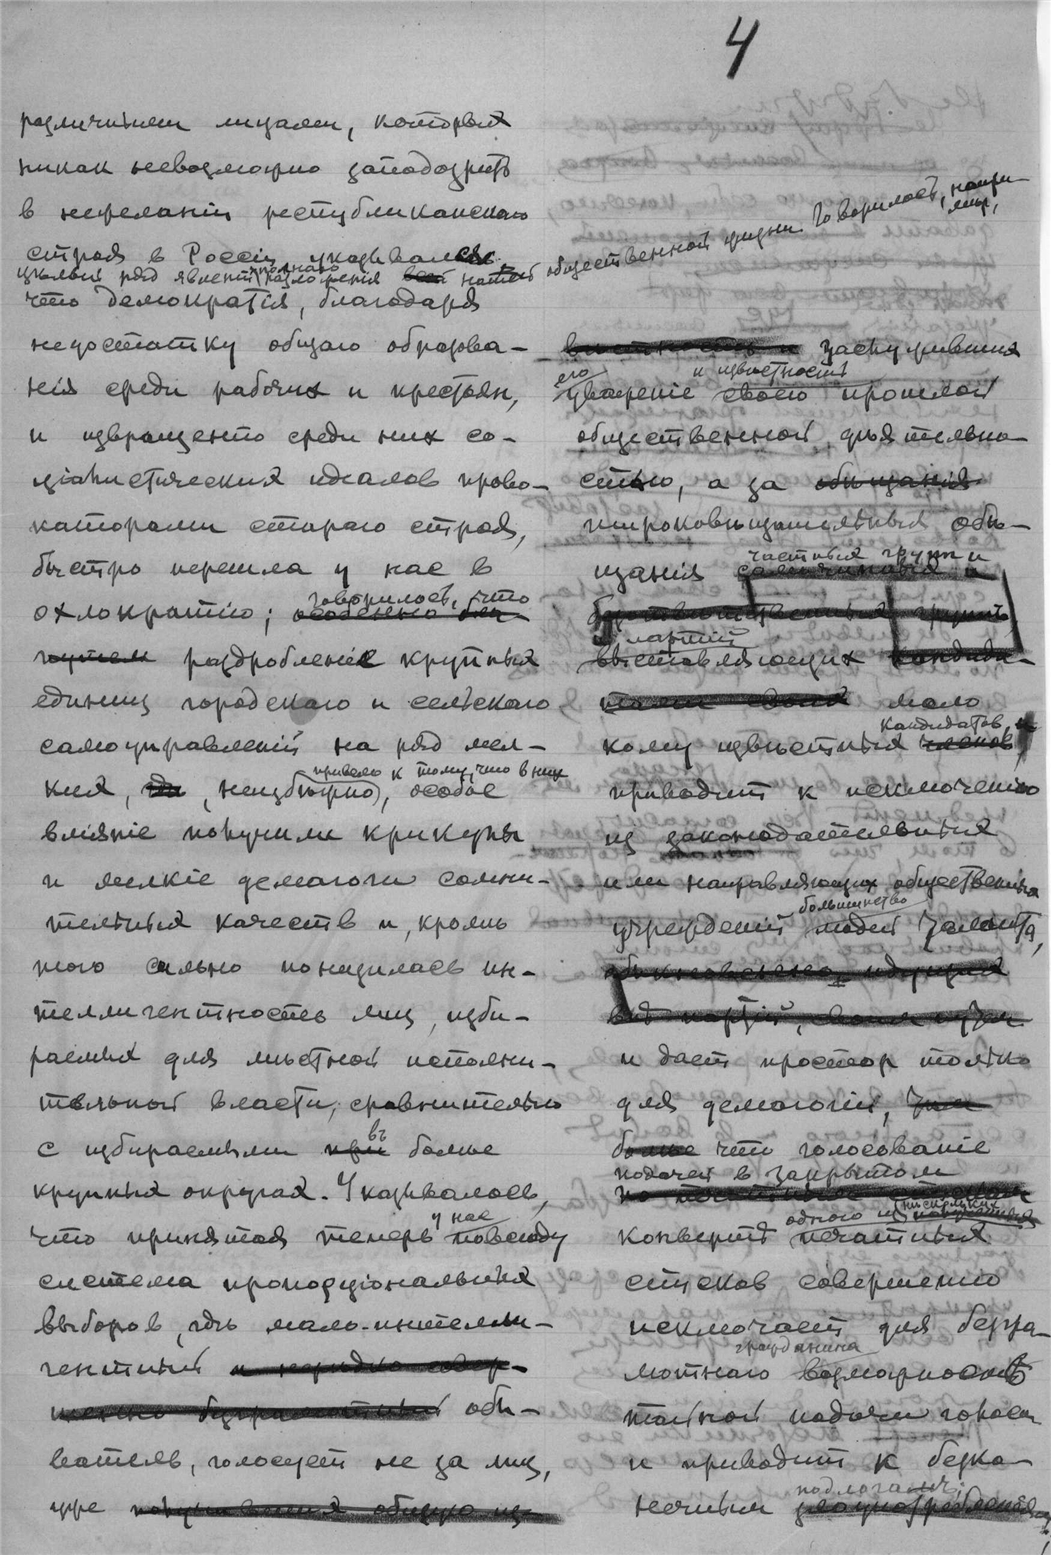 4
различными лицами, которых
никак невозможно заподозрить
в нежеланіи республиканскаго
строя в Россіи указывался
цѣлый ряд явленій полнаго разложенія всей нашей общественной жизни. Говорилось, напри-
мѣр,
что демократія, благодаря
недостатку общаго образова-
нія среди рабочих и крестьян,
и извращенію среди них со-
ціалистических идеалов прово-
каторами стараго строя,
быстро перешла у нас в
охлократію; говорилось, что
раздробленіе крупных
единиц городского и сельскаго
самоуправленій на ряд мел-
ких, неизбѣжно привело к тому, что в них особое
вліяніе получили крикуны
и мелкіе демагоги сомни-
тельных качеств и, кромѣ
того сильно понизилась ин-
теллигентность лиц, изби-
раемых для мѣстной исполни-
тельной власти, сравнительно
с избираемыми въ болѣе
крупных округах. Указывалось,
что принятая теперь у нас повсюду
система пропорціональных
выборов, гдѣ мало-интелли-
гентный обы-
ватель, голосует не за лиц,
уже
заслуживших
его уваженіе и извѣстность своею прошлой
общественной дѣятельно-
стью, а за
широковѣщательныя обѣ-
щанія частных групп и
партій
выставляющих
мало
кому извѣстных кандидатов,
приводит к исключенію
из законодательных
или направляющих общественных
учрежденій большинство людей таланта,
и дает простор только
для демагогіи,
что голосованіе
подачей в закрытом
конвертѣ одного из нѣскольких печатных
списков совершенно
исключает для безгра-
мотнаго гражданина возможность
тайной подачи голоса
и приводит к безко-
нечным подлогам,